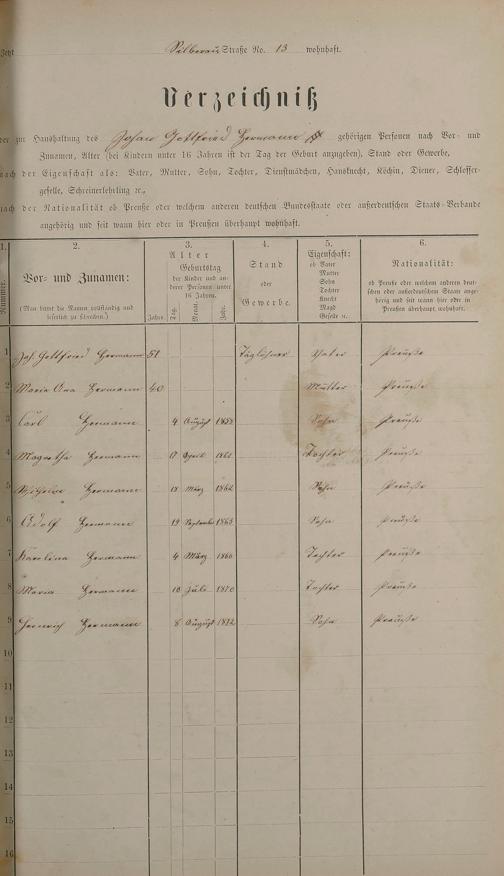 Jetzt Straße No. 13 wohnhaft.
Verzeichniß
der zur Haushaltung des Johan Gottfried Hermann gehörigen Personen nach Vor- und
Zunamen, Alter (bei Kindern unter 16 Jahren ist der Tag der Geburt anzugeben), Stand oder Gewerbe,
nach der Eigenschaft als: Vater, Mutter, Sohn, Tochter, Dienstmädchen, Hausknecht, Köchin, Diener, Schlosser-
geselle, Schreinerlehrling ec.,
nach der Nationalität ob Preuße oder welchem anderen deutschen Bundesstaate oder außerdeutschen Staats-Verbande
angehörig und seit wann hier oder in Preußen überhaupt wohnhaft.
1. 2. 3. 4. 5. 6.
Nummer.
Vor- und Zunamen:
(Man bittet die Namen vollständig und
leserlich zu schreiben.)
Alter
Geburtstag
der Kinder und an-
derer Personen unter
16 Jahren.
Jahre. Tag. Monat. Jahr.
Stand
oder
Gewerbe.
Eigenschaft:
ob Vater
Mutter
Sohn
Tochter
Knecht
Magd
Geselle u.
Nationalität:
ob Preuße oder welchem anderen deut-
schen oder außerdeutschen Staat ange-
hörig und seit wann hier oder in
Preußen überhaupt wohnhaft.
1 Joh. Gottfried Hermann 51 Taglöhner Vater Preuße
2 Maria Hermann 40 Mutter Preuße
3 Carl Hermann 4 August Sohn Preuße
4 Magretha Hermann April Tochter Preuße
5 Wilhelm Hermann 18 März 1862 Sohn Preuße
6 Adolf Hermann 19 September 1863 Sohn Preuße
7 Karolina Hermann 4 März 1866 Tochter Preuße
8 Maria Hermann 10 Juli 1870 Tochter Preuße
9 Heinrich Hermann 8 August 1872 Sohn Preuße
10
11
12
13
14
15
16